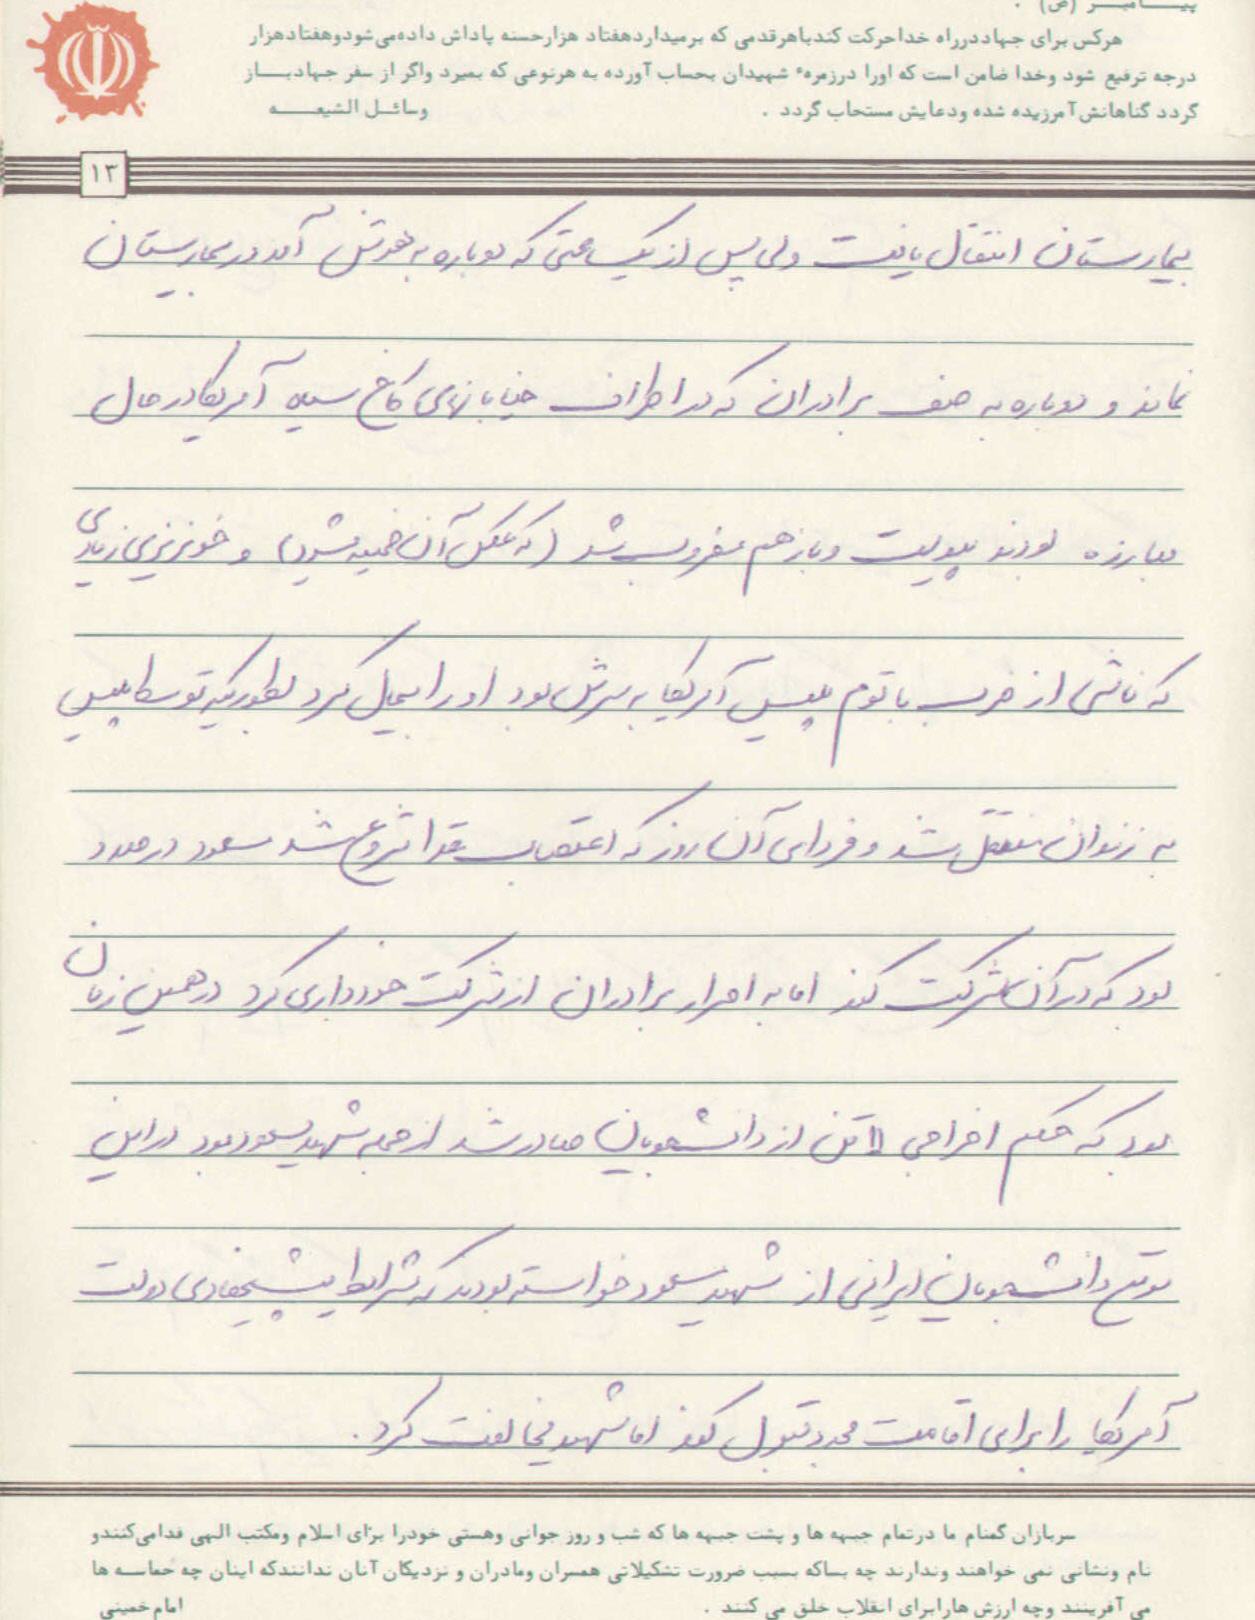 پیـــامبـــر (ص) .
هرکس برای جهاددرراه خداحرکت کندباهرقدمی که برمیداردهفتاد هزارحسنه پاداش داده‌می‌شودوهفتادهزار
درجه ترفیع شود وخدا ضامن است که اورا درزمرهٔ شهیدان بحساب آورده به هرنوعی که بمیرد واگر از سفر جهادبـــاز
گردد گناهانش آمرزیده شده ودعایش مستجاب گردد . وسائـل الشیعـــه
۱۳
بیمارستان انتقال یافت ولی پس از یکساعتی که دوباره به هوش آمد در بیمارستان
نماند و دوباره به صف برادران که در اطراف خیابانهای کاخ سیاه آمریکا در حال
مبارزه بودند پیوست و باز هم مضروب شد (که عکس آن ضمیمه میشود) و خونریزی زیادی
که ناشی از ضرب باتوم پلیس آمریکا به سرش بود او را بیحال کرد بطوریکه توسط پلیس
به زندان منتقل شد و فردای آن روز که اعتصاب غذا شروع شد مسعود در صدد
بود که در آن شرکت کند اما به اصرار برادران از شرکت خودداری کرد در همین زمان
بود که حکم اخراجی ۱۱ تن از دانشجویان صادر شد از جمله شهید مسعود بود در این
موقع دانشجویان ایرانی از شهید مسعود خواسته بودند که شرایط پیشنهادی دولت
آمریکا را برای اقامت مجدد قبول کند اما شهید مخالفت کرد.
سربازان گمنام ما درتمام جبهه ها و پشت جبهه ها که شب و روز جوانی وهستی خودرا برای اسلام ومکتب الهی فدامی‌کنندو
نام ونشانی نمی خواهند وندارند چه بساکه بسبب ضرورت تشکیلاتی همسران ومادران و نزدیکان آنان ندانندکه اینان چه حماسـه ها
می آفرینند وچه ارزش هارابرای انقلاب خلق می کنند . امام خمینی